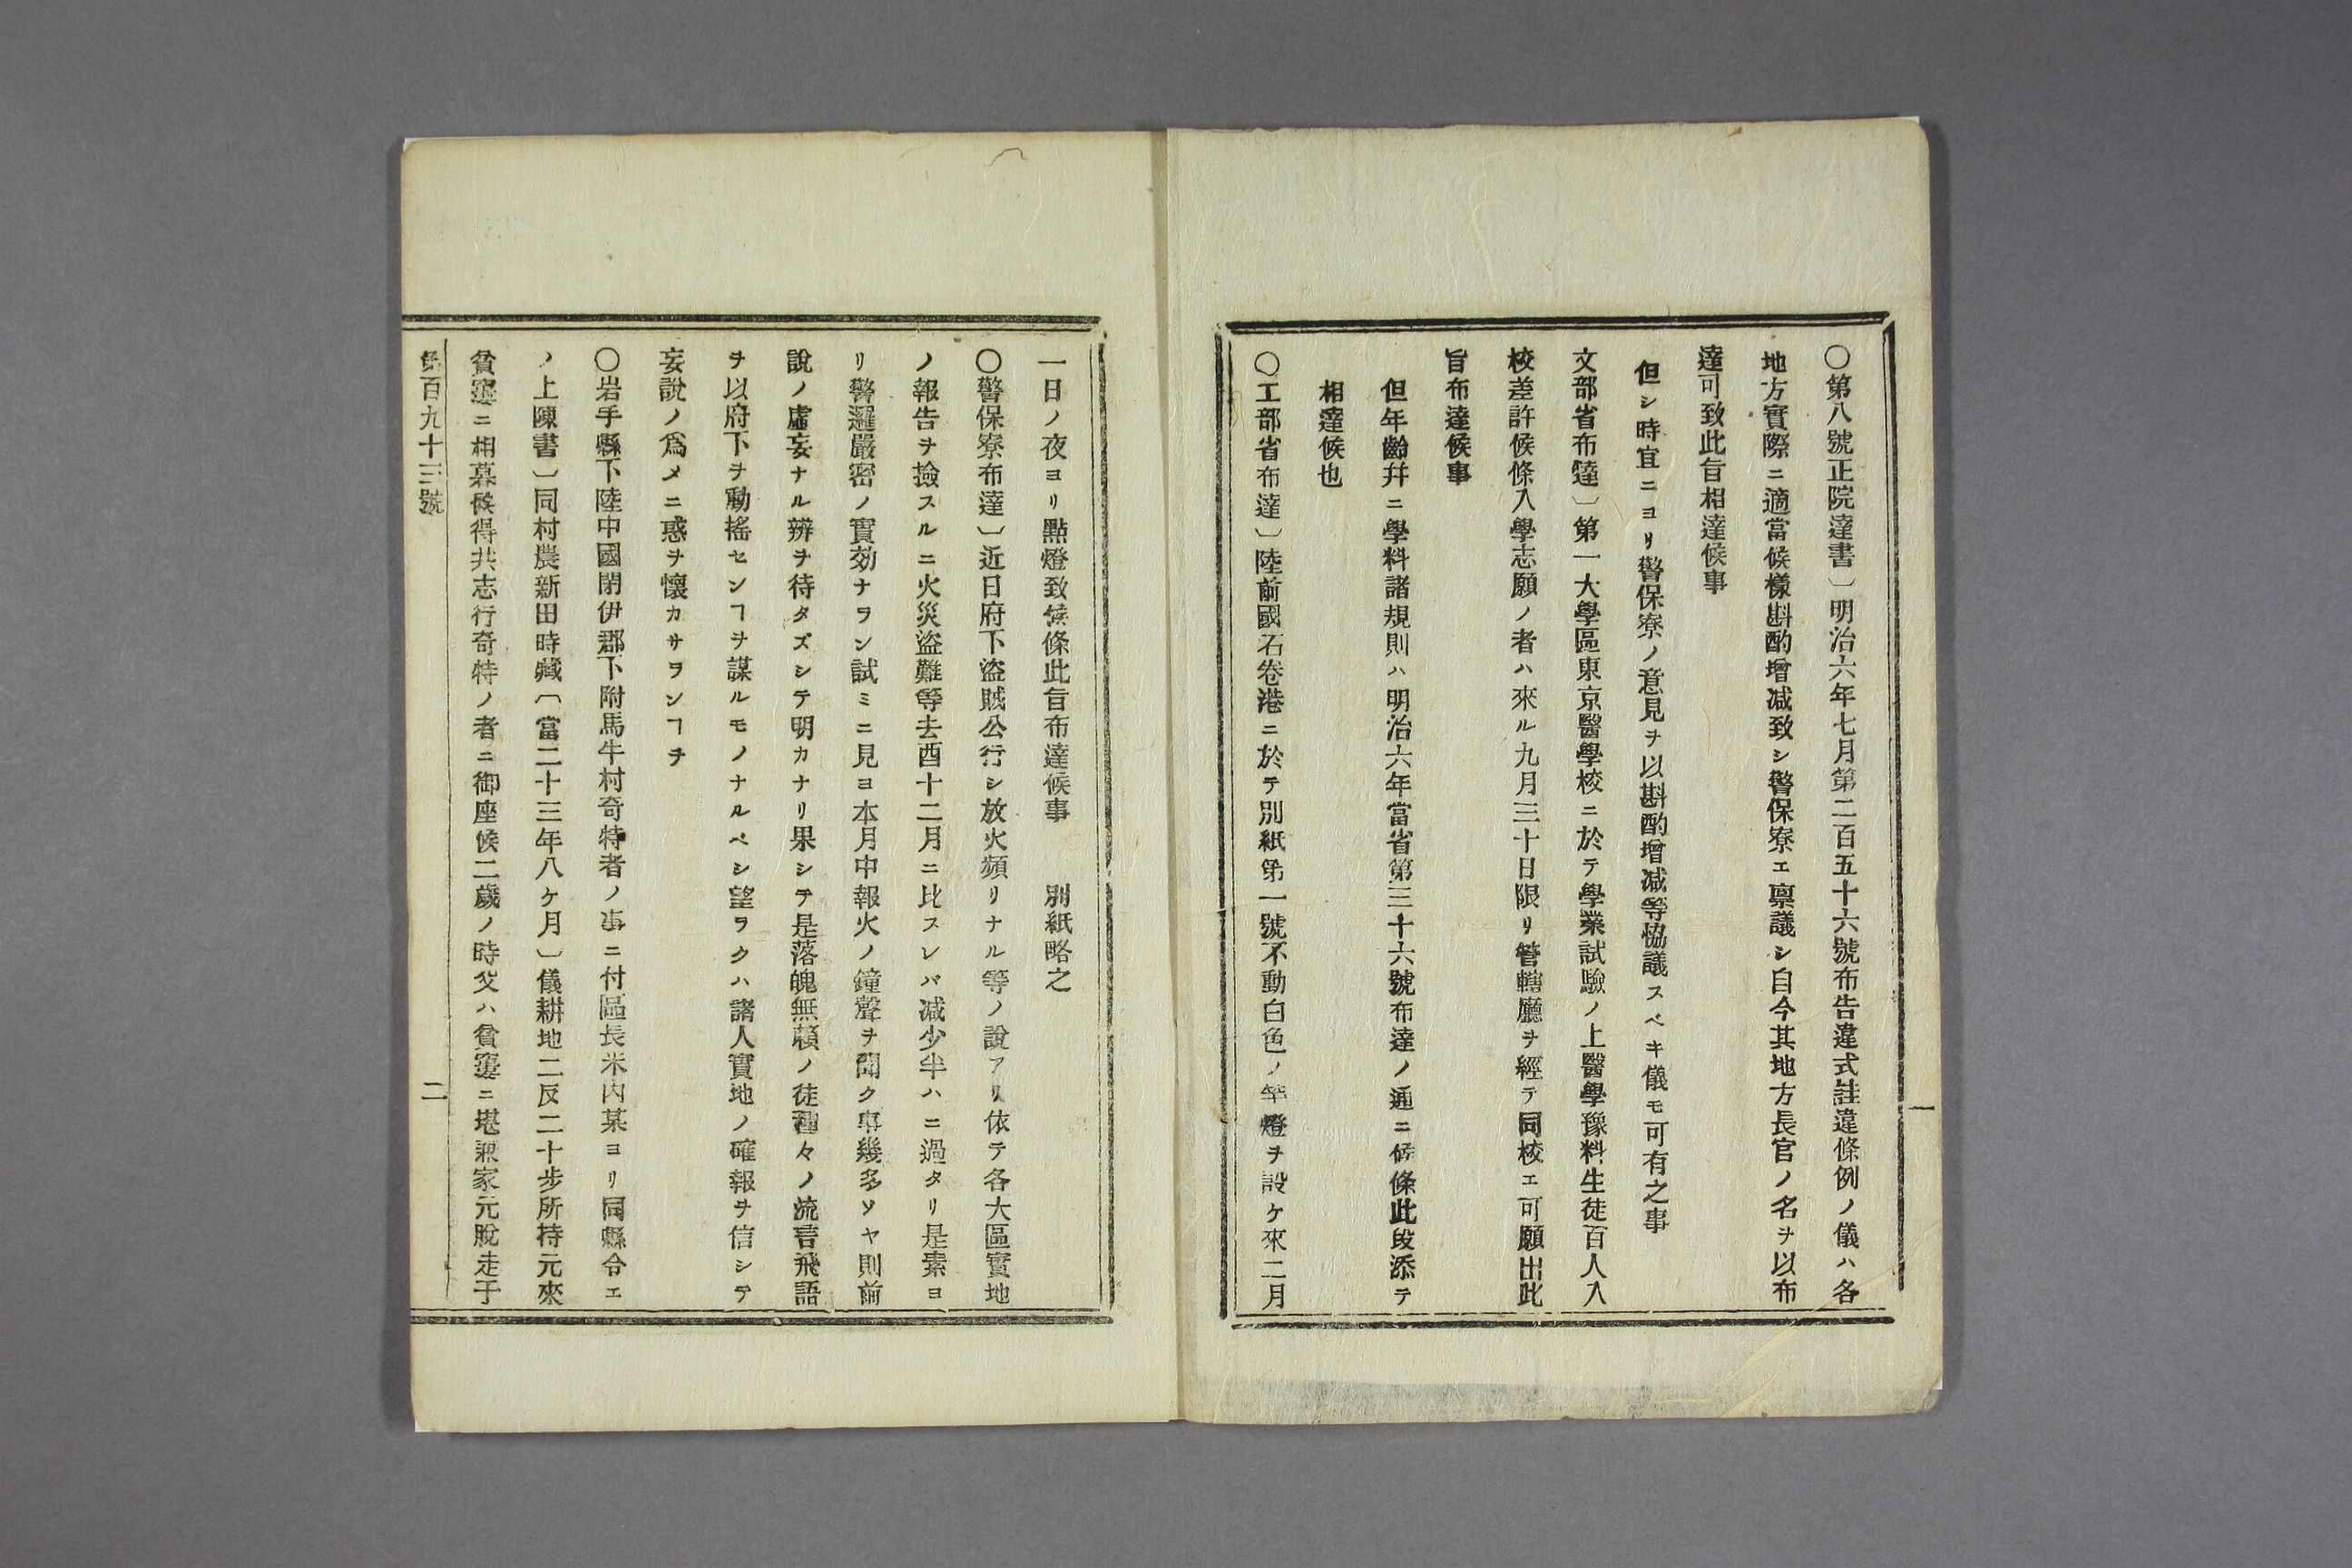 〇第八號正院達書〕明治六年七月第二百五十六號布告違式詿違條例ノ儀ハ各
地方實際ニ適當候樣斟酌增减致シ警保寮エ禀議シ自今其地方長官ノ名ヲ以布
達可致此旨相達候事
但シ時宜ニヨリ警保寮ノ意見ヲ以斟酌增减等恊議スベキ儀モ可有之事
文部省布達〕第一大學區東京醫學校ニ於テ學業試驗ノ上醫學豫科生徒百人入
校差許候條入學志願ノ者ハ來ル九月三十日限リ管轄廳ヲ經テ同校エ可願出此
旨布達候事
但年齡幷ニ學科諸規則ハ明治六年當省第三十六號布達ノ通ニ候條此段添テ
相達候也
〇工部省布達〕陸前國石卷港ニ於テ別紙第一號不動白色ノ竿燈ヲ設ケ來二月
一
一日ノ夜ヨリ點燈致候條此旨布達候事　　別紙略之
〇警保寮布達〕近日府下盜賊公行シ放火頻リナル等ノ說アリ依テ各大區實地
ノ報告ヲ撿スルニ火災盜難等去酉十二月ニ比スレバ减少半ハニ過タリ是素ヨ
リ警邏嚴密ノ實効ナラン試ミニ見ヨ本月中報火ノ鐘聲ヲ聞ク事幾多ソヤ則前
說ノ虛妄ナル辨ヲ待タズシテ明カナリ果シテ是落魄無賴ノ徒種々ノ流言飛語
ヲ以府下ヲ動搖センヿヲ謀ルモノナルベシ望ヲクハ諸人實地ノ確報ヲ信シテ
妄說ノ爲メニ惑ヲ懷カサランヿヲ
〇岩手縣下陸中國閉伊郡下附馬牛村奇特者ノ事ニ付區長米内某ヨリ同縣令エ
ノ上陳書〕同村農新田時臧〔當二十三年八ケ月〕儀耕地二反二十步所持元來
貧窶ニ相暮候得共志行奇特ノ者ニ御座候二歲ノ時父ハ貧窶ニ堪兼家元脫走于
第百九十三號
二